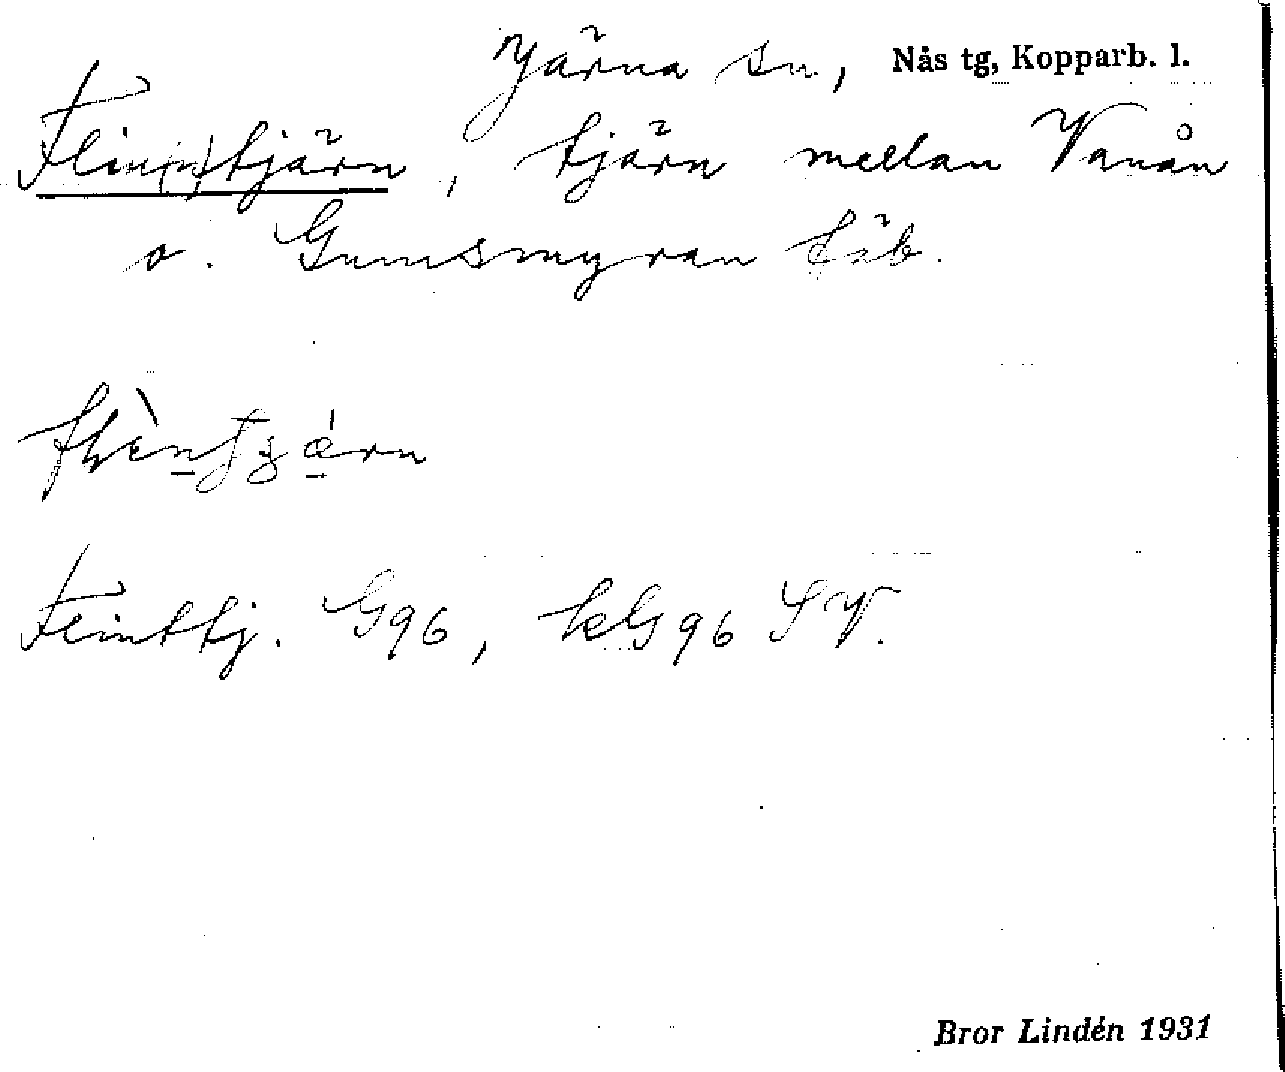 Järna sn, Nås tg, Kopparb. l.
Flin(n)tjärn, tjärn mellan Vanån
o. Gumsmyran fäb.
Flinttj. G96, kG96 SV.
Bror Lindén 1931